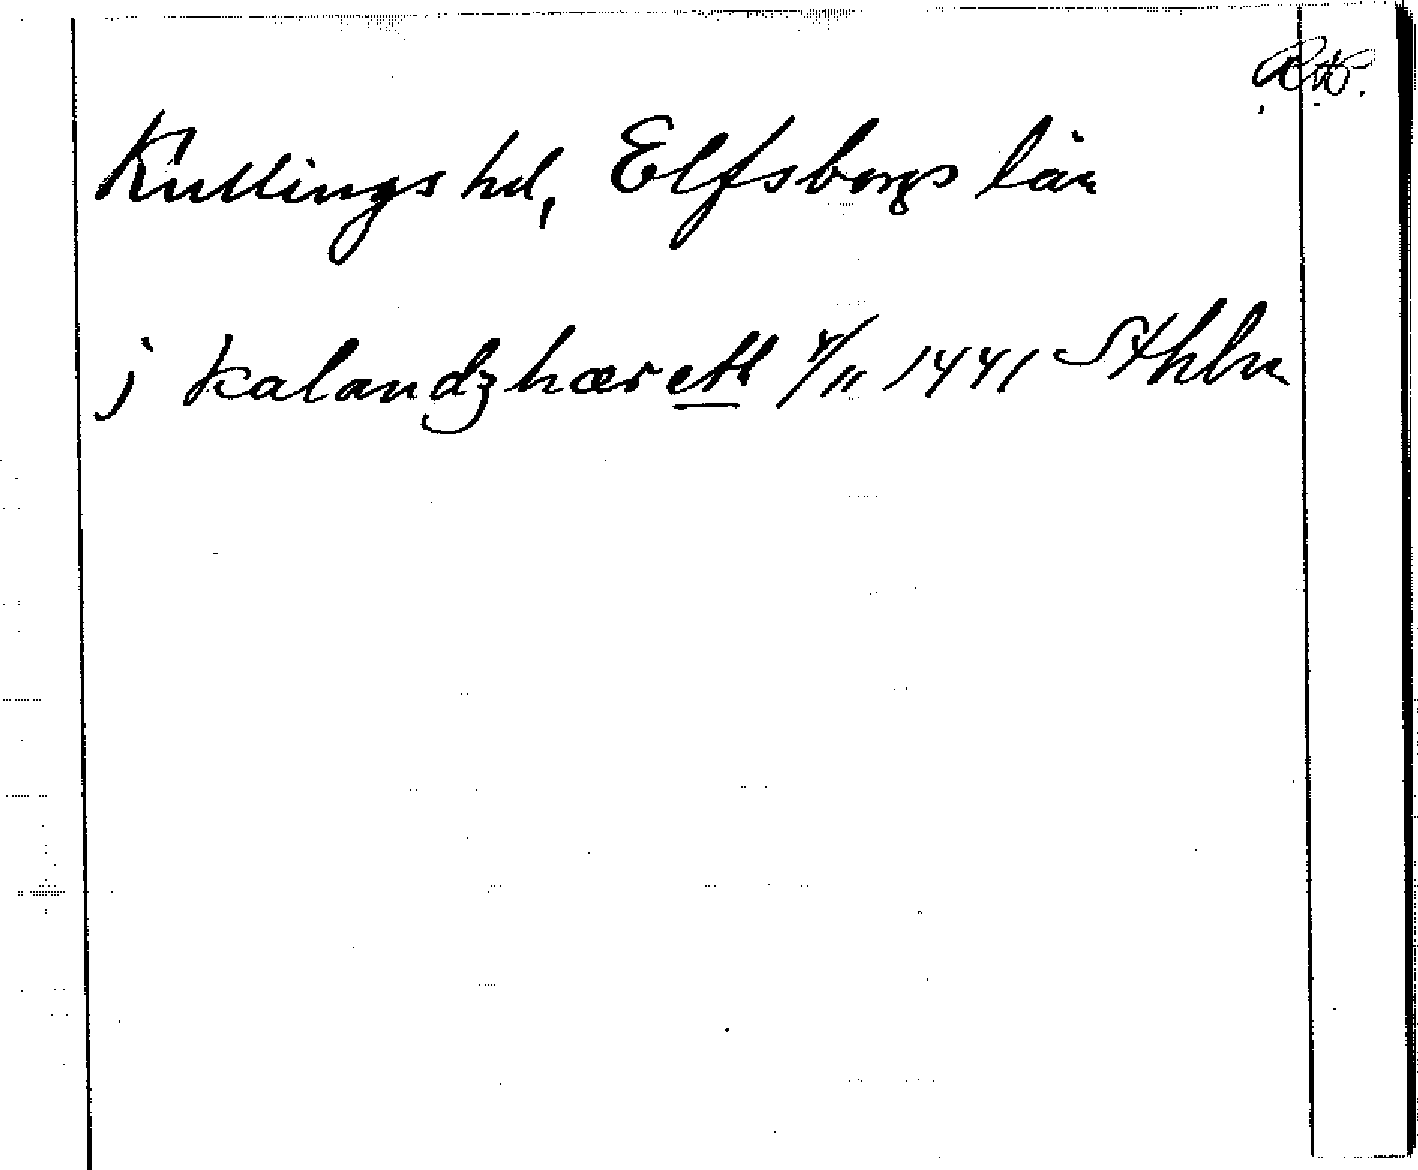 Kullings hd, Elfsborgs län
j kalandzhærett 4/11 1441 Sthlm